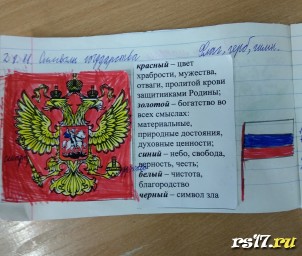 Символы государства
Флаг, герб, гимн.
красный – цвет
храбрости, мужества,
отваги, пролитой крови
защитниками Родины;
золотой – богатство во
всех смыслах:
материальные,
природные достояния,
духовные ценности;
синий – небо, свобода,
верность, честь;
белый – чистота,
благородство
черный – символ зла
rs17.ru